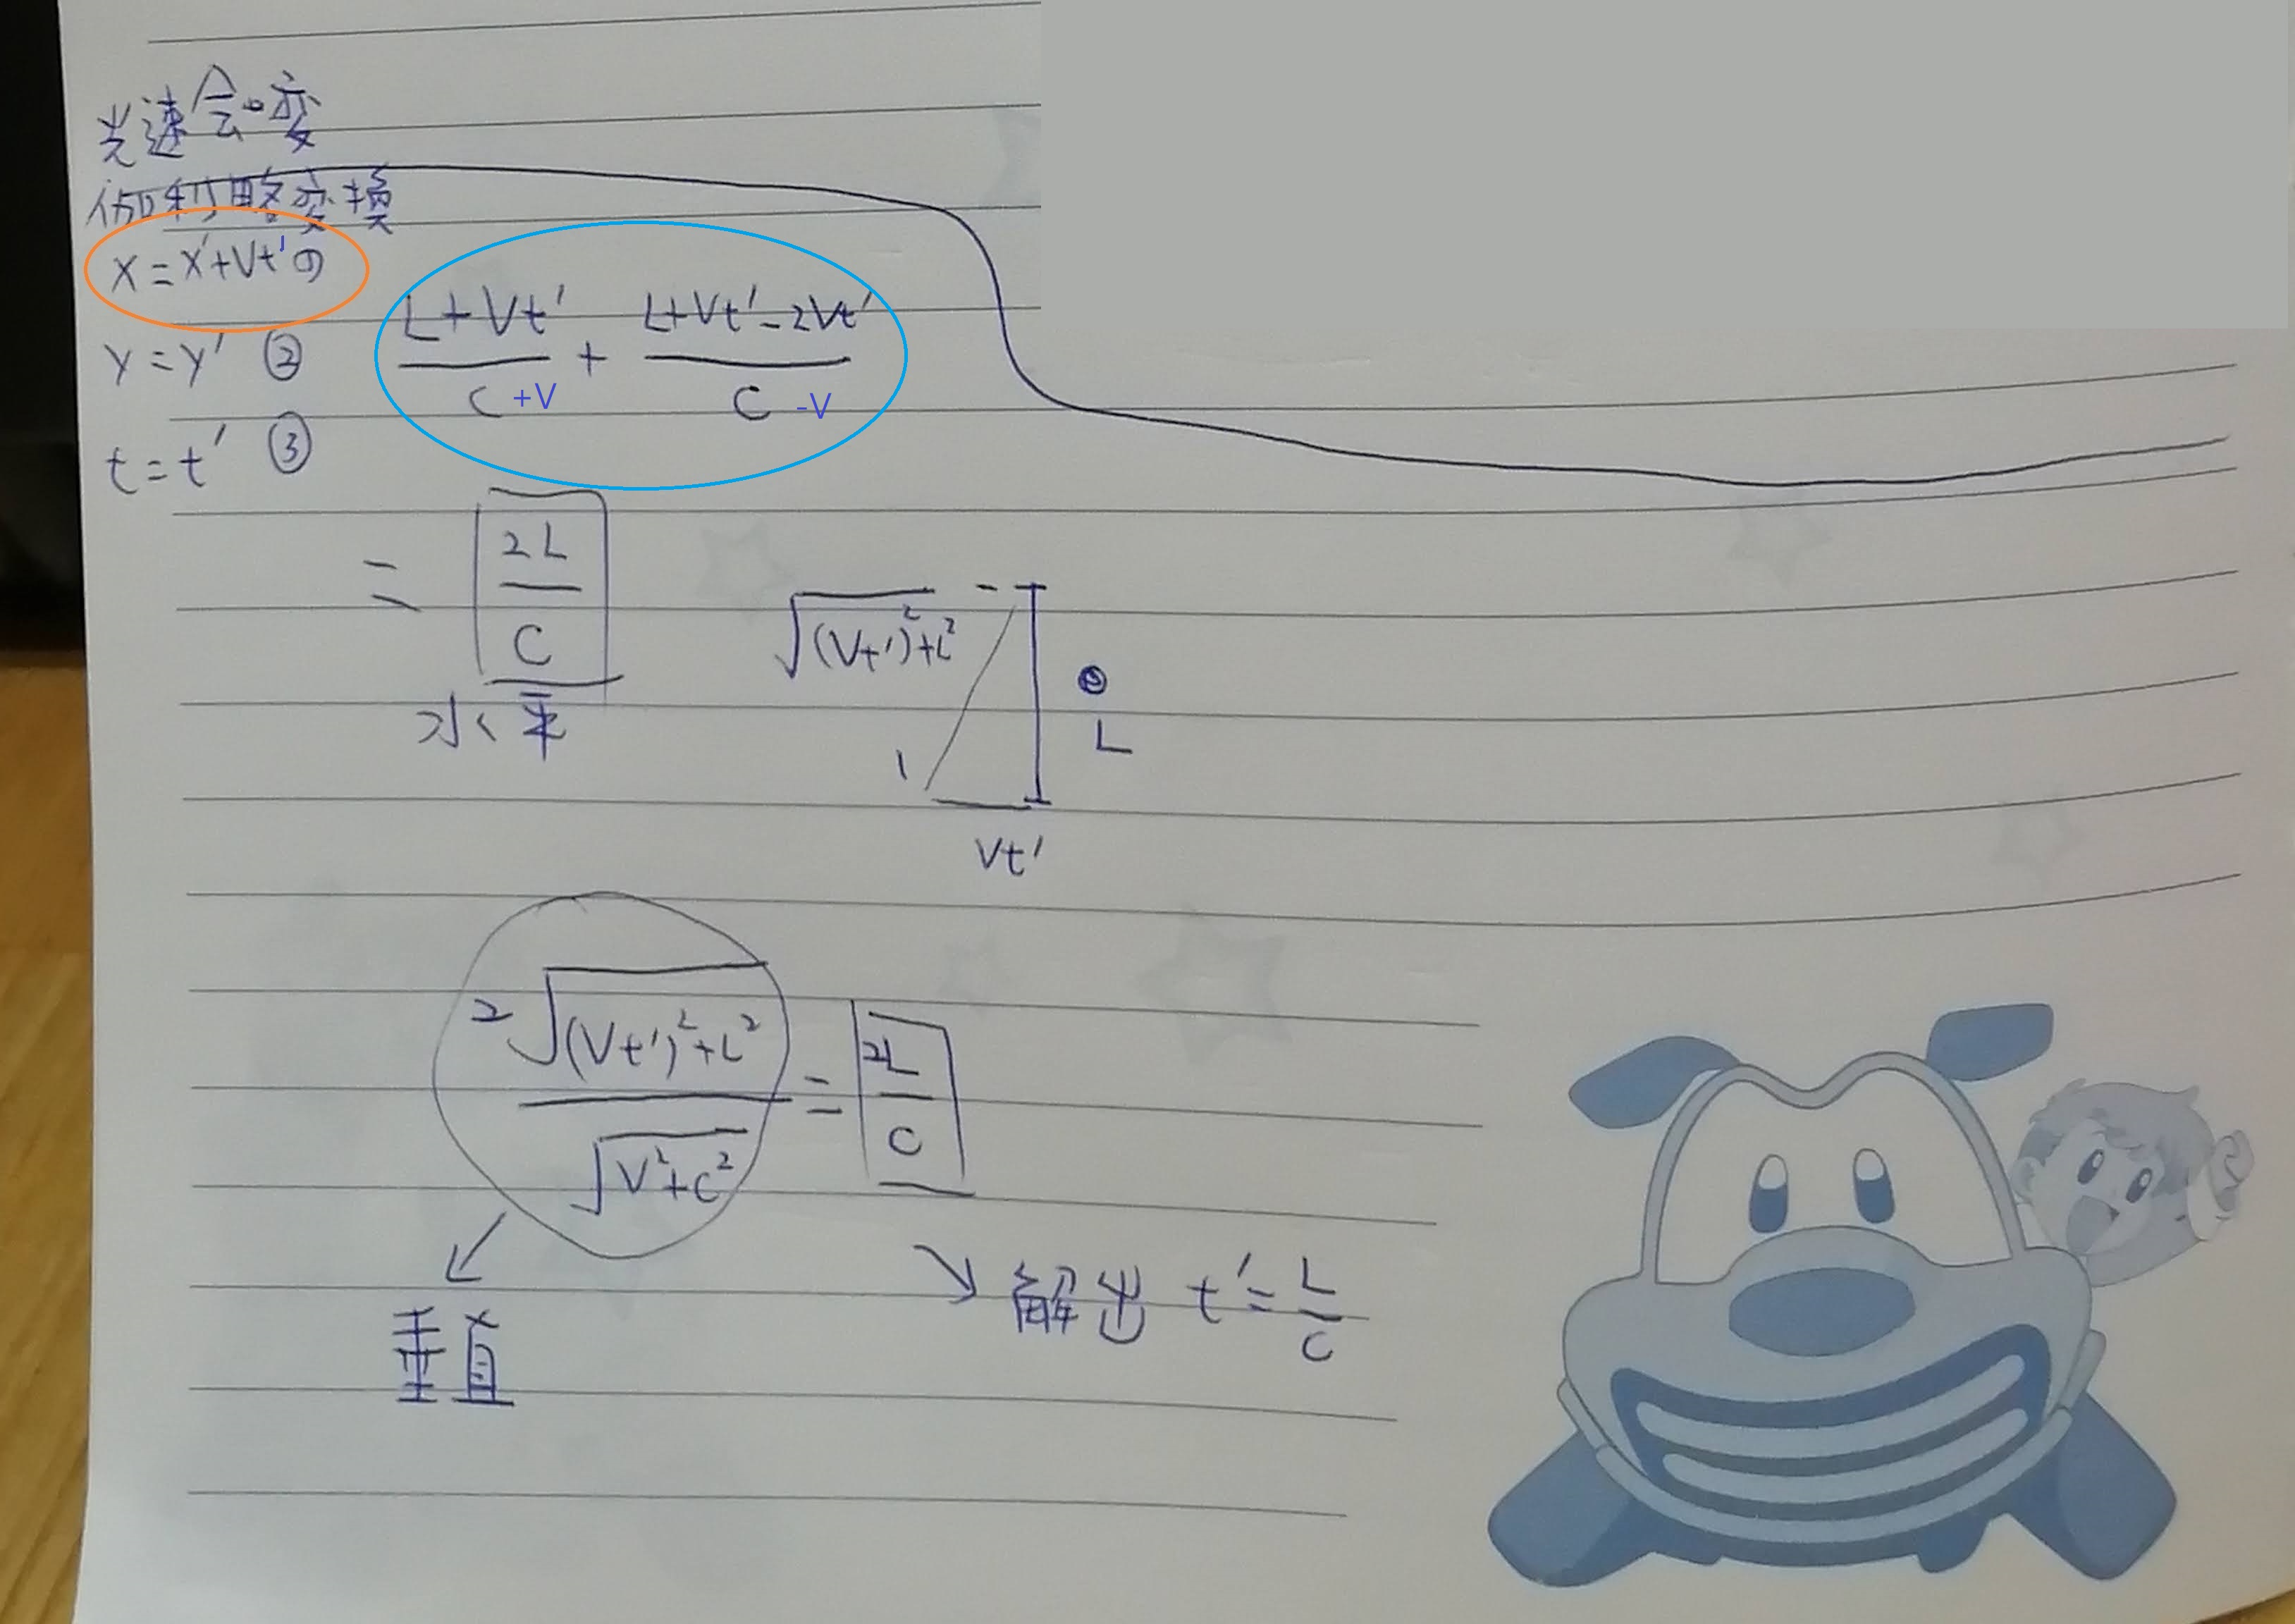 光速会变
伽利略变换
x=x'+Vt' ①
y=y' ②
t=t' ③
\frac{L+Vt'}{C+V} + \frac{L+Vt'-2Vt'}{C-V}
= \frac{2L}{C}
水平
\sqrt{(Vt')^2+L^2}
L
Vt'
\frac{2\sqrt{(Vt')^2+L^2}}{\sqrt{V^2+C^2}} = \frac{2L}{C}
垂直
解出 t'=\frac{L}{C}